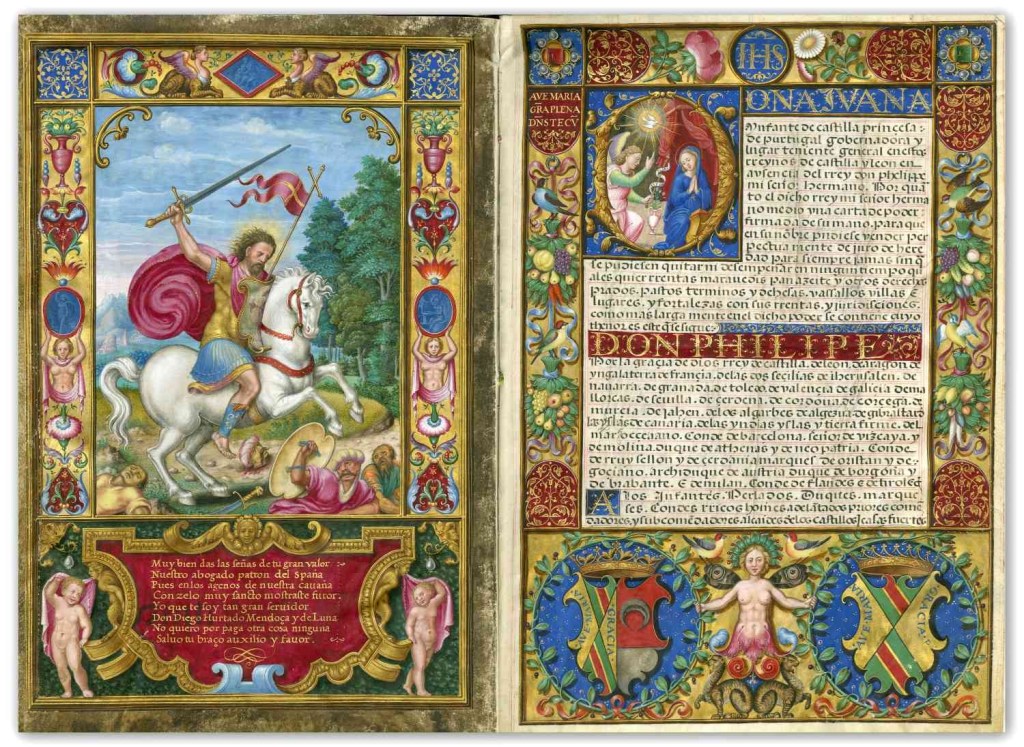 Muy bien das las señas de tu gran valor
Nuestro abogado patron del Spaña
Pues en los agenos de nuestra cavaña
Con zelo muy sancto mostraste furor.
Yo que te soy tan gran seruidor
Don Diego Hurtado Mendoça y de Luna
No quiero por paga otra cosa ninguna
Saluo tu braço auxilio y fauor.
IHS
AVE MARIA
GRA PLENA
DNS TECV
DONA JVANA
Ynfante de castilla princesa
de purtugal gobernadora y
lugar teniente general en estos
rreynos de castilla y leon en
avsencia del rrey don phelippe
mi señor hermano. Por quã
to el dicho rrey mi señor herma
no me dio vna carta de poder
firmada de su mano. para que
en su nõbre pudiese vender per
petuamente de juro de here
dad para siempre jamas sin q̃
se pudiesen quitar ni desempeñar en ningun tiempo qu
ales quier rrentas marauedis pan azeite y otros derechos
prados. pastos terminos y dehesas. vasallos villas E
lugares. y fortalezas con sus rrentas. y jurisdiciones.
como mas larga mente en el dicho poder se contiene cuyo
thenor es este que se sigue
DON PHILIPE
Por la gracia de dios rrey de castilla. de leon. de aragon de
yngalaterra de francia. de las dos secilias de iherusalen. de
navarra. de granada. de toledo. de valencia de galicia de ma
llorcas. de sevilla. de çerdena. de cordoua de corcega. de
murcia. de jahen. de los algarbes de algezira de gibraltar d
las yslas de canaria. de las yndias yslas y tierra firme. del
mar occeano. Conde de barcelona. señor de vizcaya. y
de molina. duque de athenas y de neo patria. Conde
de ruysellon y de çerdania. marques de oristan y de
gociano. archiduque de austria duque de borgoña y
de brabante. E de milan. Conde de flandes E de tirol &c
A los Infantes. Perlados. Duques. marque
ses. Condes rricos homes adelatados priores come
dadores. y subcomedadores alcaides de los castillos
AVE MARIA
GRACIA
AVE MARIA
GRACIA